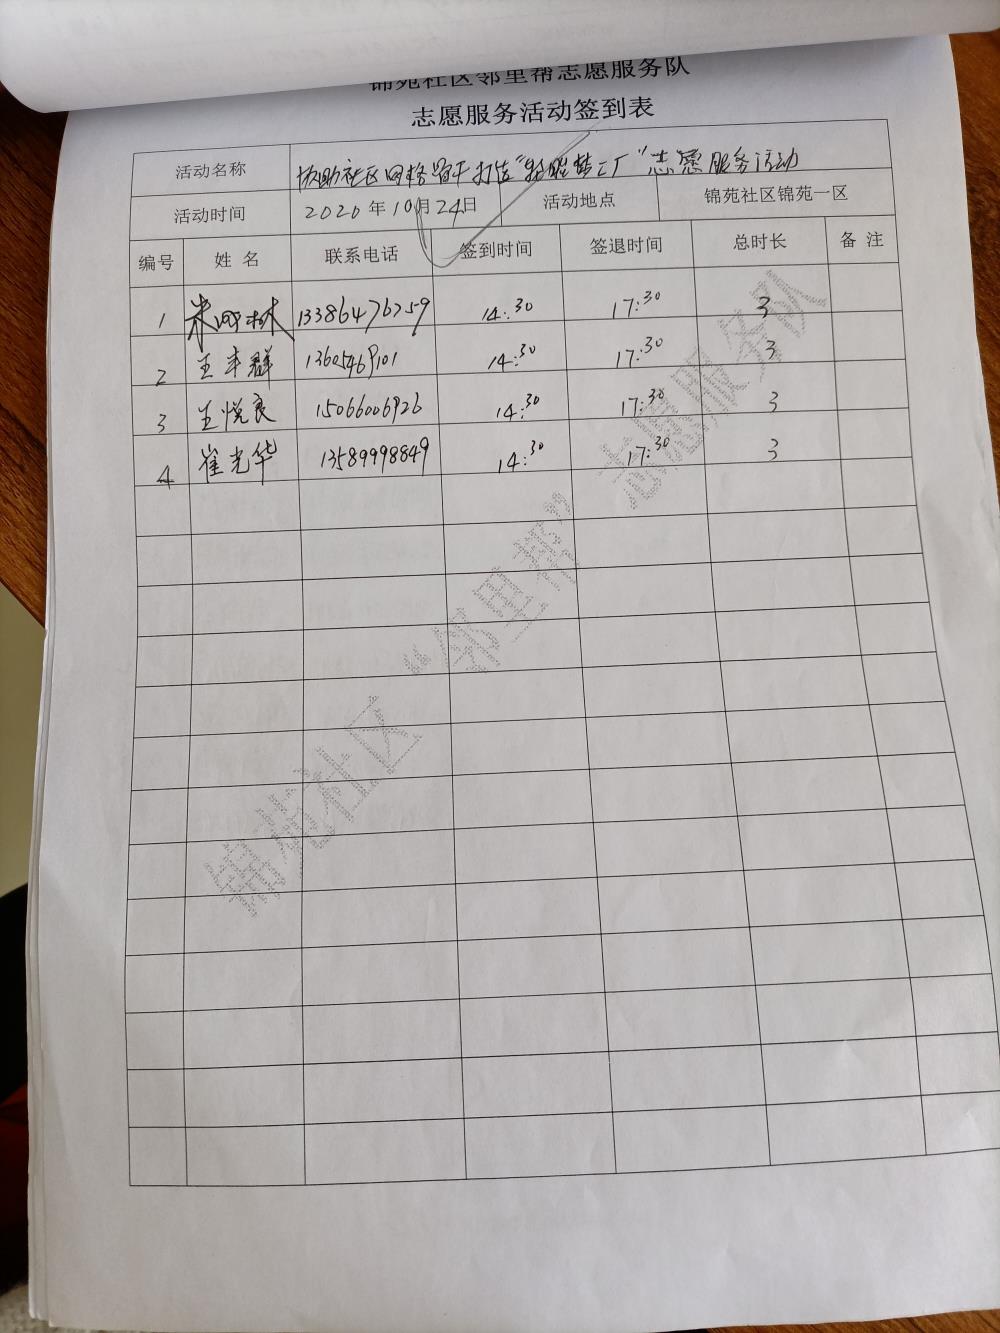 锦苑社区邻里帮志愿服务队
志愿服务活动签到表
活动名称 协助社区网格 打造" 梦工厂"志愿服务活动
活动时间 2020年10月24日 活动地点 锦苑社区锦苑一区
编号 姓名 联系电话 签到时间 签退时间 总时长 备注
1 13386476259 14:30 17:30 3
2 王丰群 13605469101 14:30 17:30 3
3 王悦良 15066006926 14:30 17:30 3
4 崔光华 13589998849 14:30 17:30 3
锦苑社区"邻里帮"志愿服务队